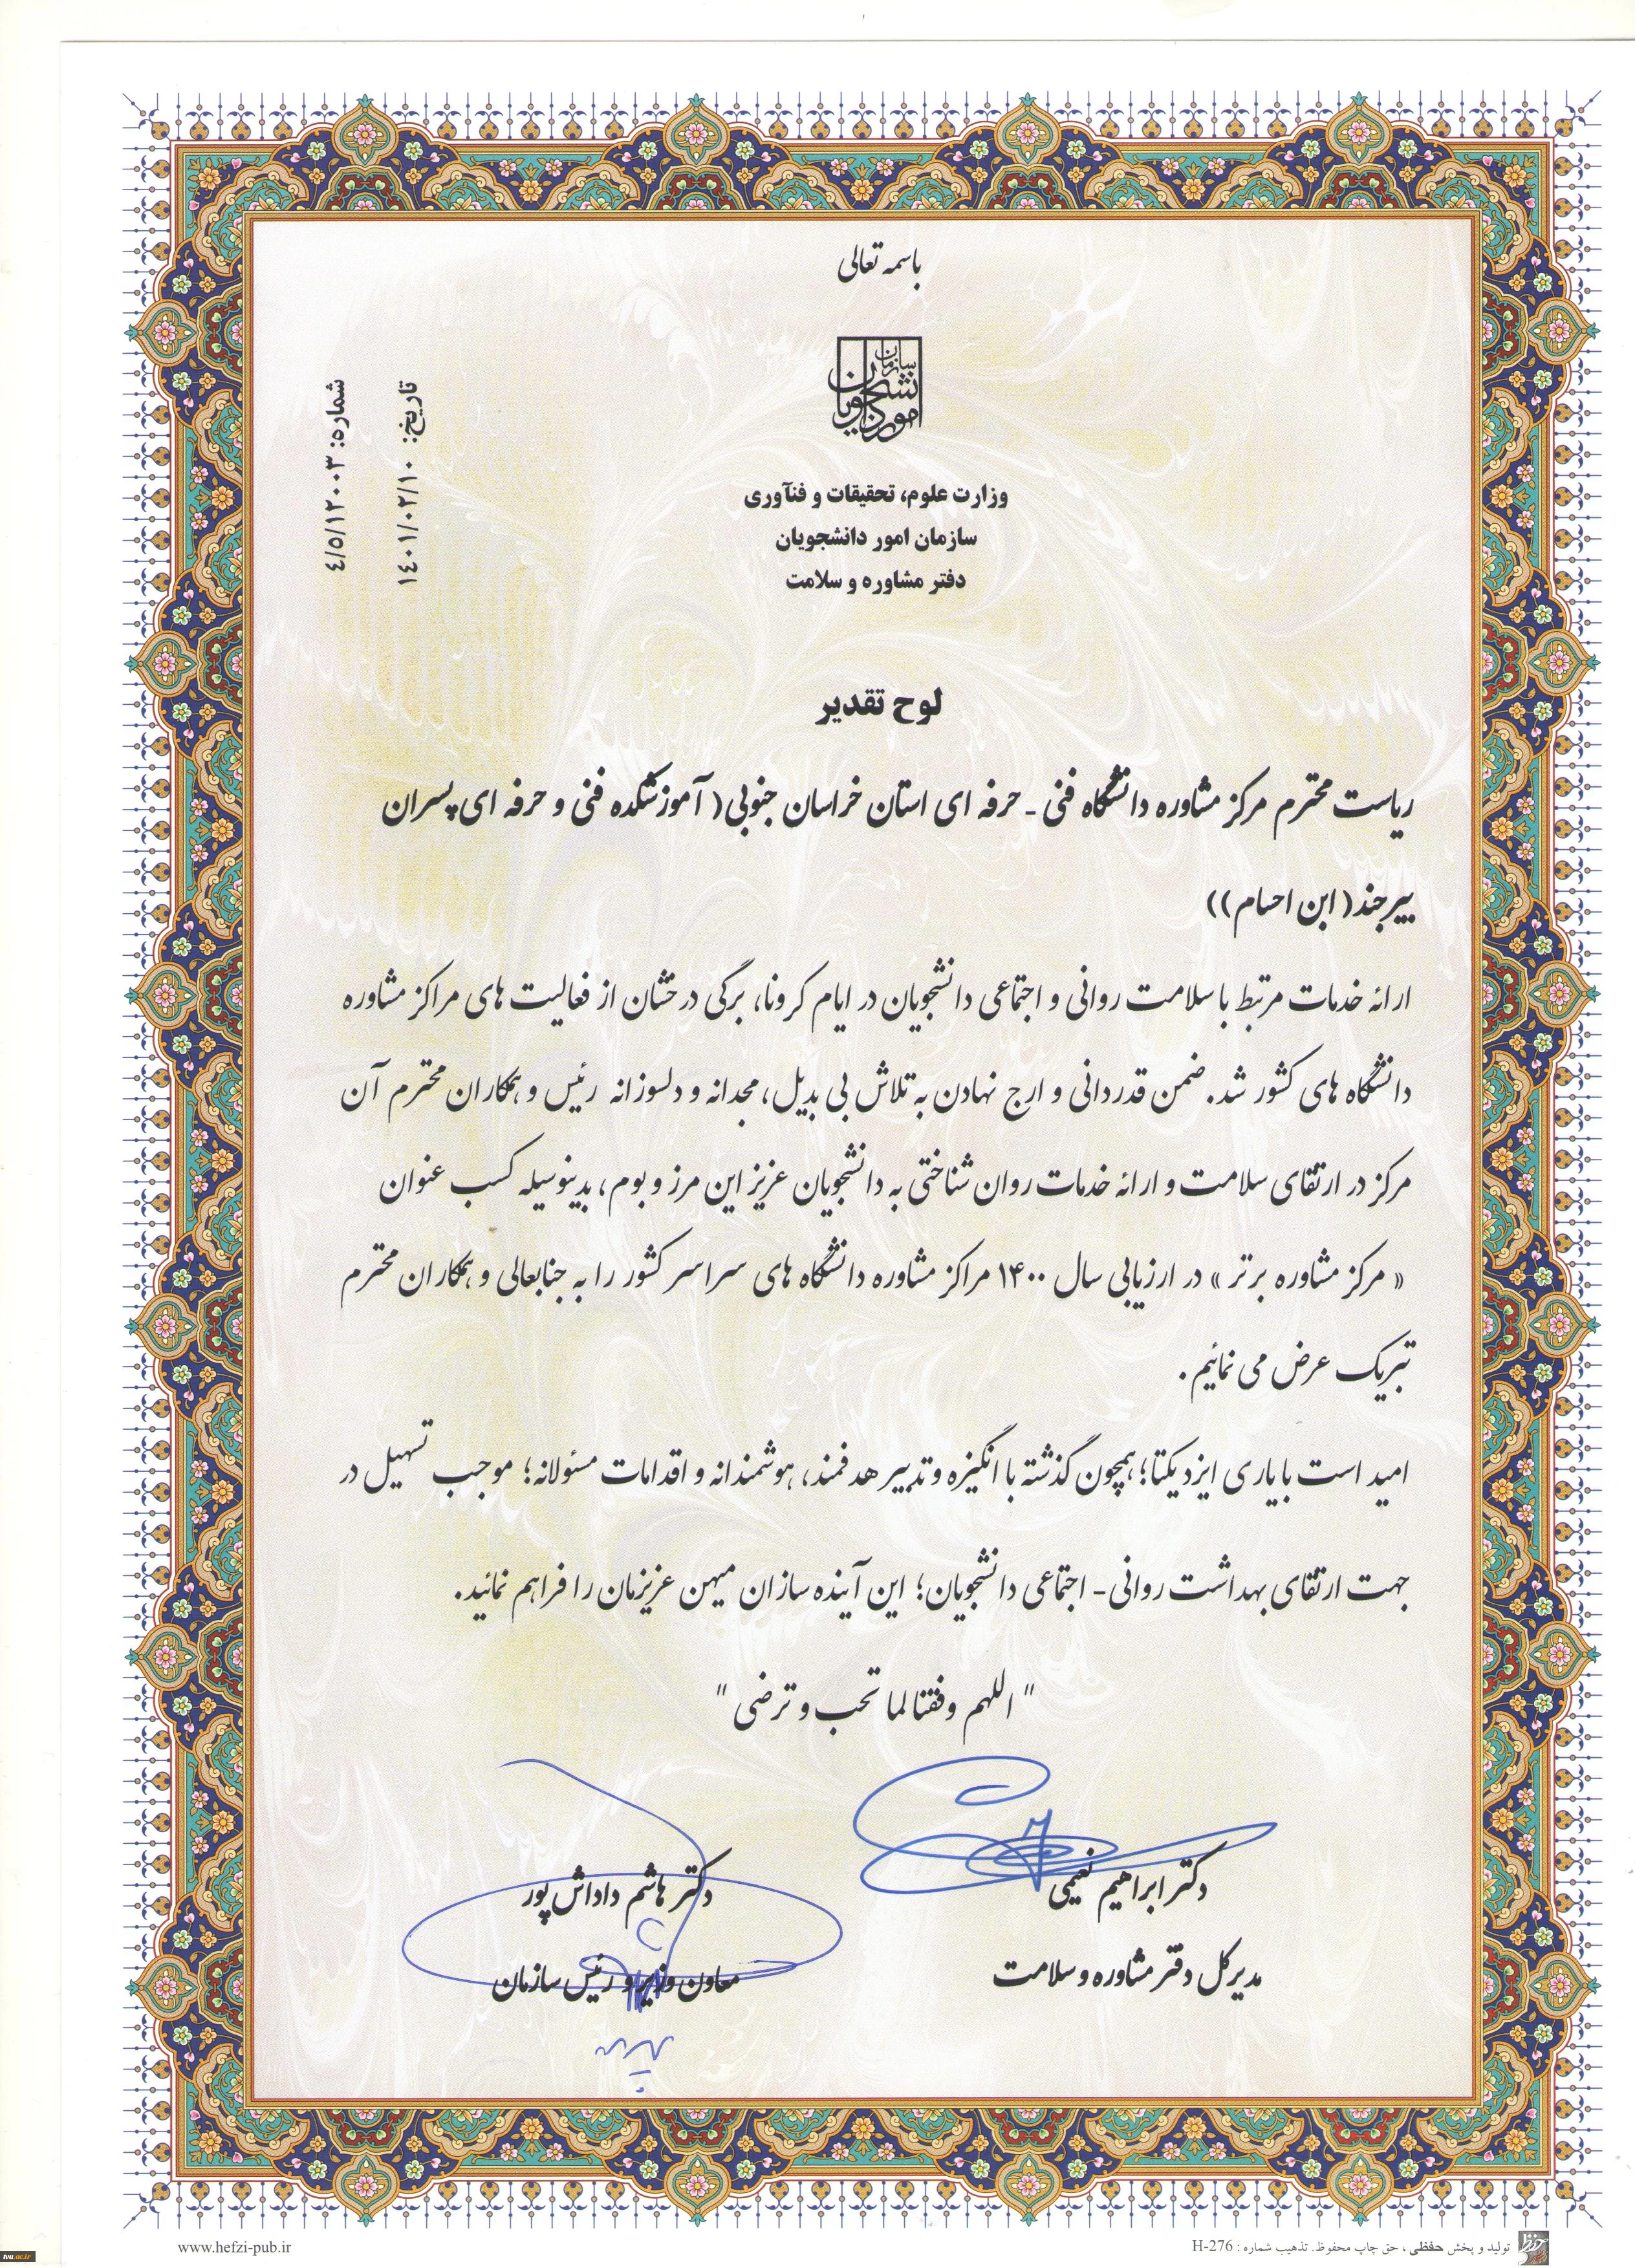 باسمه تعالی
سازمان امور دانشجویان
شماره: ۴/۵/۱۲۰۰۳
تاریخ: ۱۴۰۱/۰۲/۱۰
وزارت علوم، تحقیقات و فنآوری
سازمان امور دانشجویان
دفتر مشاوره و سلامت
لوح تقدیر
ریاست محترم مرکز مشاوره دانشگاه فنی - حرفه ای استان خراسان جنوبی( آموزشکده فنی و حرفه ای پسران
بیرجند( ابن احسام))
ارائه خدمات مرتبط با سلامت روانی و اجتماعی دانشجویان در ایام کرونا، برگی درخشان از فعالیت های مراکز مشاوره
دانشگاه های کشور شد. ضمن قدردانی و ارج نهادن به تلاش بی بدیل، مجدانه و دلسوزانه رئیس و همکاران محترم آن
مرکز در ارتقای سلامت و ارائه خدمات روان شناختی به دانشجویان عزیز این مرز و بوم، بدینوسیله کسب عنوان
« مرکز مشاوره برتر » در ارزیابی سال ۱۴۰۰ مراکز مشاوره دانشگاه های سراسر کشور را به جنابعالی و همکاران محترم
تبریک عرض می نمائیم.
امید است با یاری ایزد یکتا؛ همچون گذشته با انگیزه و تدبیر هدفمند، هوشمندانه و اقدامات مسئولانه؛ موجب تسهیل در
جهت ارتقای بهداشت روانی - اجتماعی دانشجویان؛ این آینده سازان میهن عزیزمان را فراهم نمائید.
" اللهم وفقنا لما تحب و ترضی "
دکتر ابراهیم نعیمی
مدیرکل دفتر مشاوره و سلامت
دکتر هاشم داداش پور
معاون وزیر و رئیس سازمان
تولید و پخش حفظی ، حق چاپ محفوظ. تذهیب شماره : H-276
www.hefzi-pub.ir
tvu.ac.ir